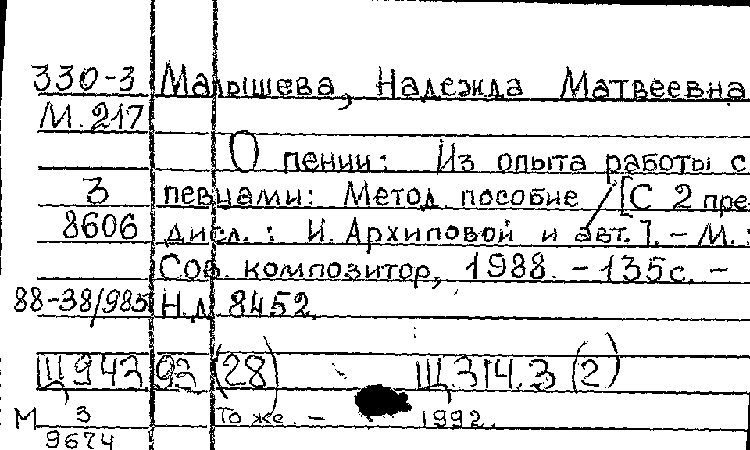 330-3 Малышева, Надежда Матвеевна
М.217
О пении: Из опыта работы с
3 певцами: Метод. пособие / [С 2 пре-
8606 дисл.: И. Архиповой и авт.]. - М.:
Сов. композитор, 1988. - 135с. -
88-38/985 Н.Д 8452.
Щ943 93 (28) Щ.314.3 (2)
М 3 То же. - 1992.
9674